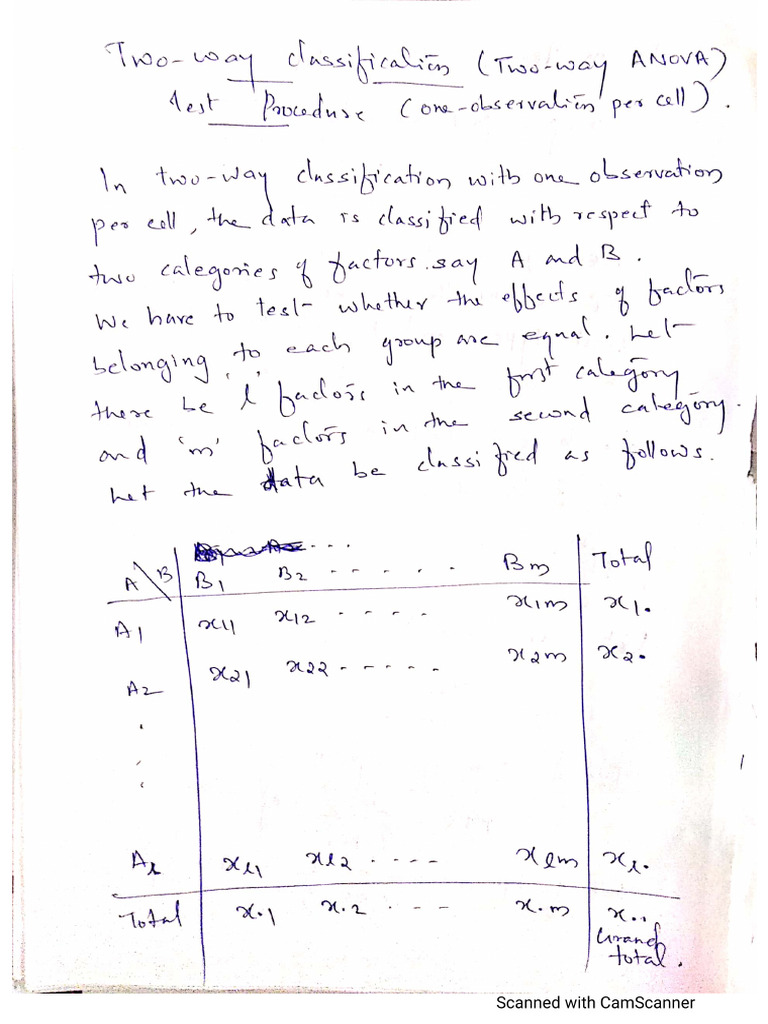 Two-way classification (Two-way ANOVA)
Test Procedure (one-observation per cell).
In two-way classification with one observation
per cell, the data is classified with respect to
two categories of factors say A and B.
We have to test whether the effects of factors
belonging to each group are equal. Let
there be 'l' factors in the first category
and 'm' factors in the second category.
Let the data be classified as follows.
...
A \ B B1 B2 - - - - - Bm Total
A1 x11 x12 - - - - x1m x1.
A2 x21 x22 - - - - - x2m x2.
.
.
.
Al xl1 xl2 - - - - xlm xl.
Total x.1 x.2 - - - x.m x..
Grand
total.
Scanned with CamScanner